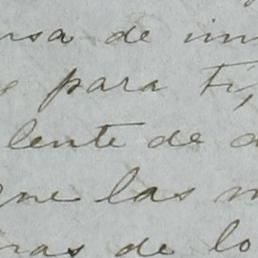 nsa de im
para ti,
lente de a
que las m
ras de lo